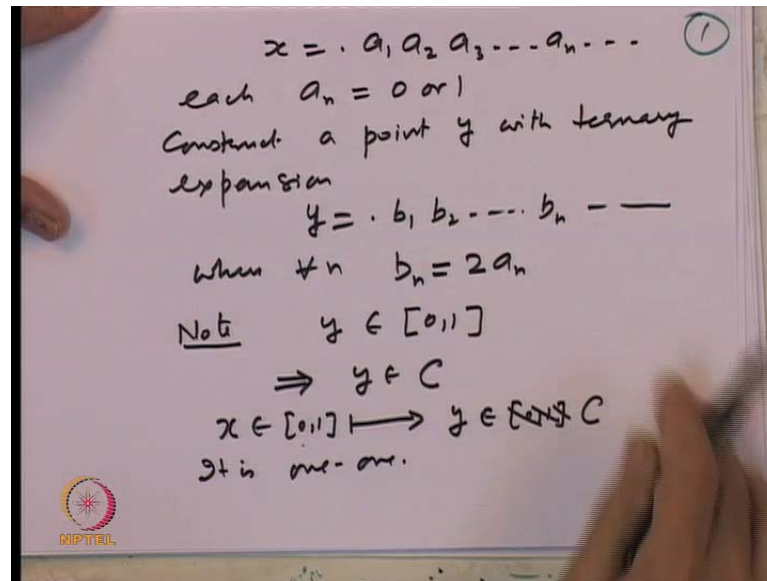 x = . a₁ a₂ a₃ --- aₙ ---
①
each aₙ = 0 or 1
Construct a point y with ternary
expansion
y = . b₁ b₂ ---- bₙ - —
when ∀ n bₙ = 2aₙ
Note y ∈ [0,1]
⇒ y ∈ C
x ∈ [0,1] ⟼ y ∈ C
It is one-one.
NPTEL